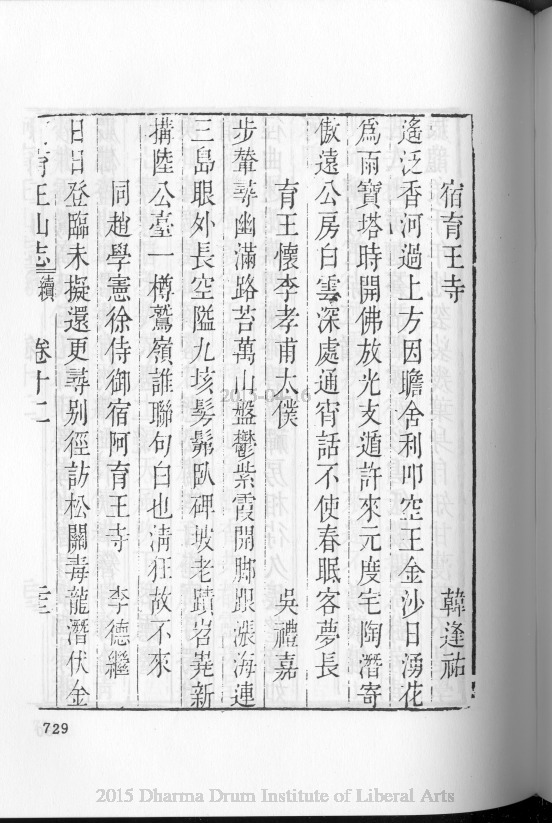 宿育王寺 韓逢祐
遙泛香河過上方因瞻舍利叩空王金沙日湧花
爲雨寶塔時開佛放光支遁許來元度宅陶潛寄
傲遠公房白雲深處通宵話不使春眠客夢長
育王懷李孝甫太僕 吳禮嘉
步輦尋幽滿路苔萬山盤鬱紫霞開腳跟漲海連
三島眼外長空隘九垓髣髴臥碑坡老蹟岧嶤新
搆陸公臺一樽鷲嶺誰聯句白也淸狂故不來
同趙學憲徐侍御宿阿育王寺 李德繼
日日登臨未擬還更尋別徑訪松關毒龍潛伏金
育王山志 續 卷十二
729
2015 Dharma Drum Institute of Liberal Arts